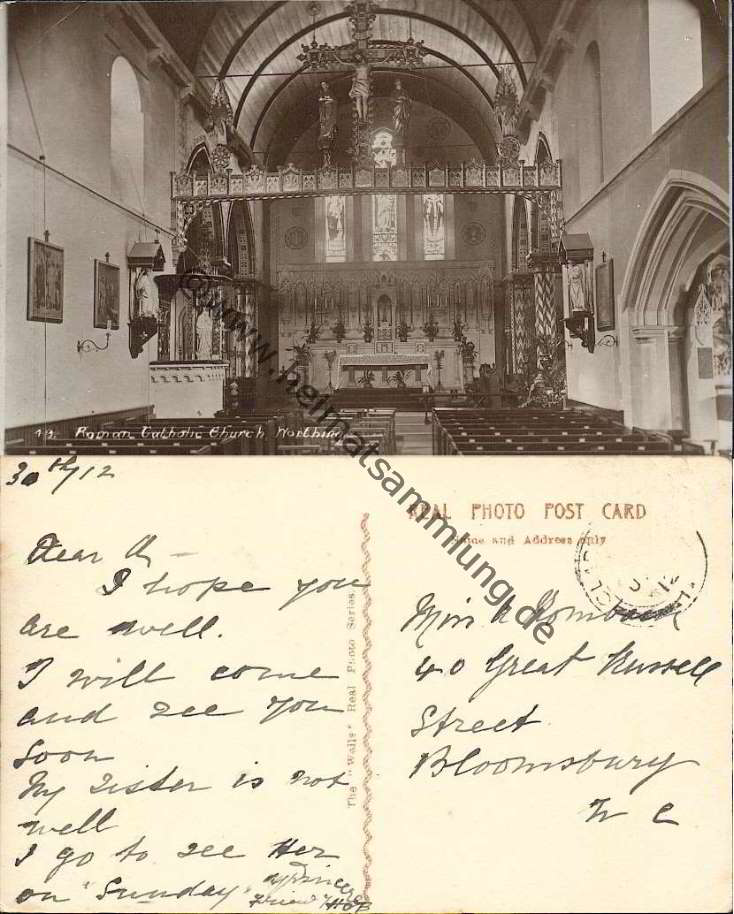 Roman Catholic Church Worthing
© www.heimatsammlung.de
30th/12
REAL PHOTO POST CARD
Name and Address only
Dear
I hope you
are well.
I will come
and see you
soon
My sister is not
well
I go to see Her
on "Sunday"
The "Wells" Real Photo Series.
Miss
40 Great Russell
Street
Bloomsbury
W C